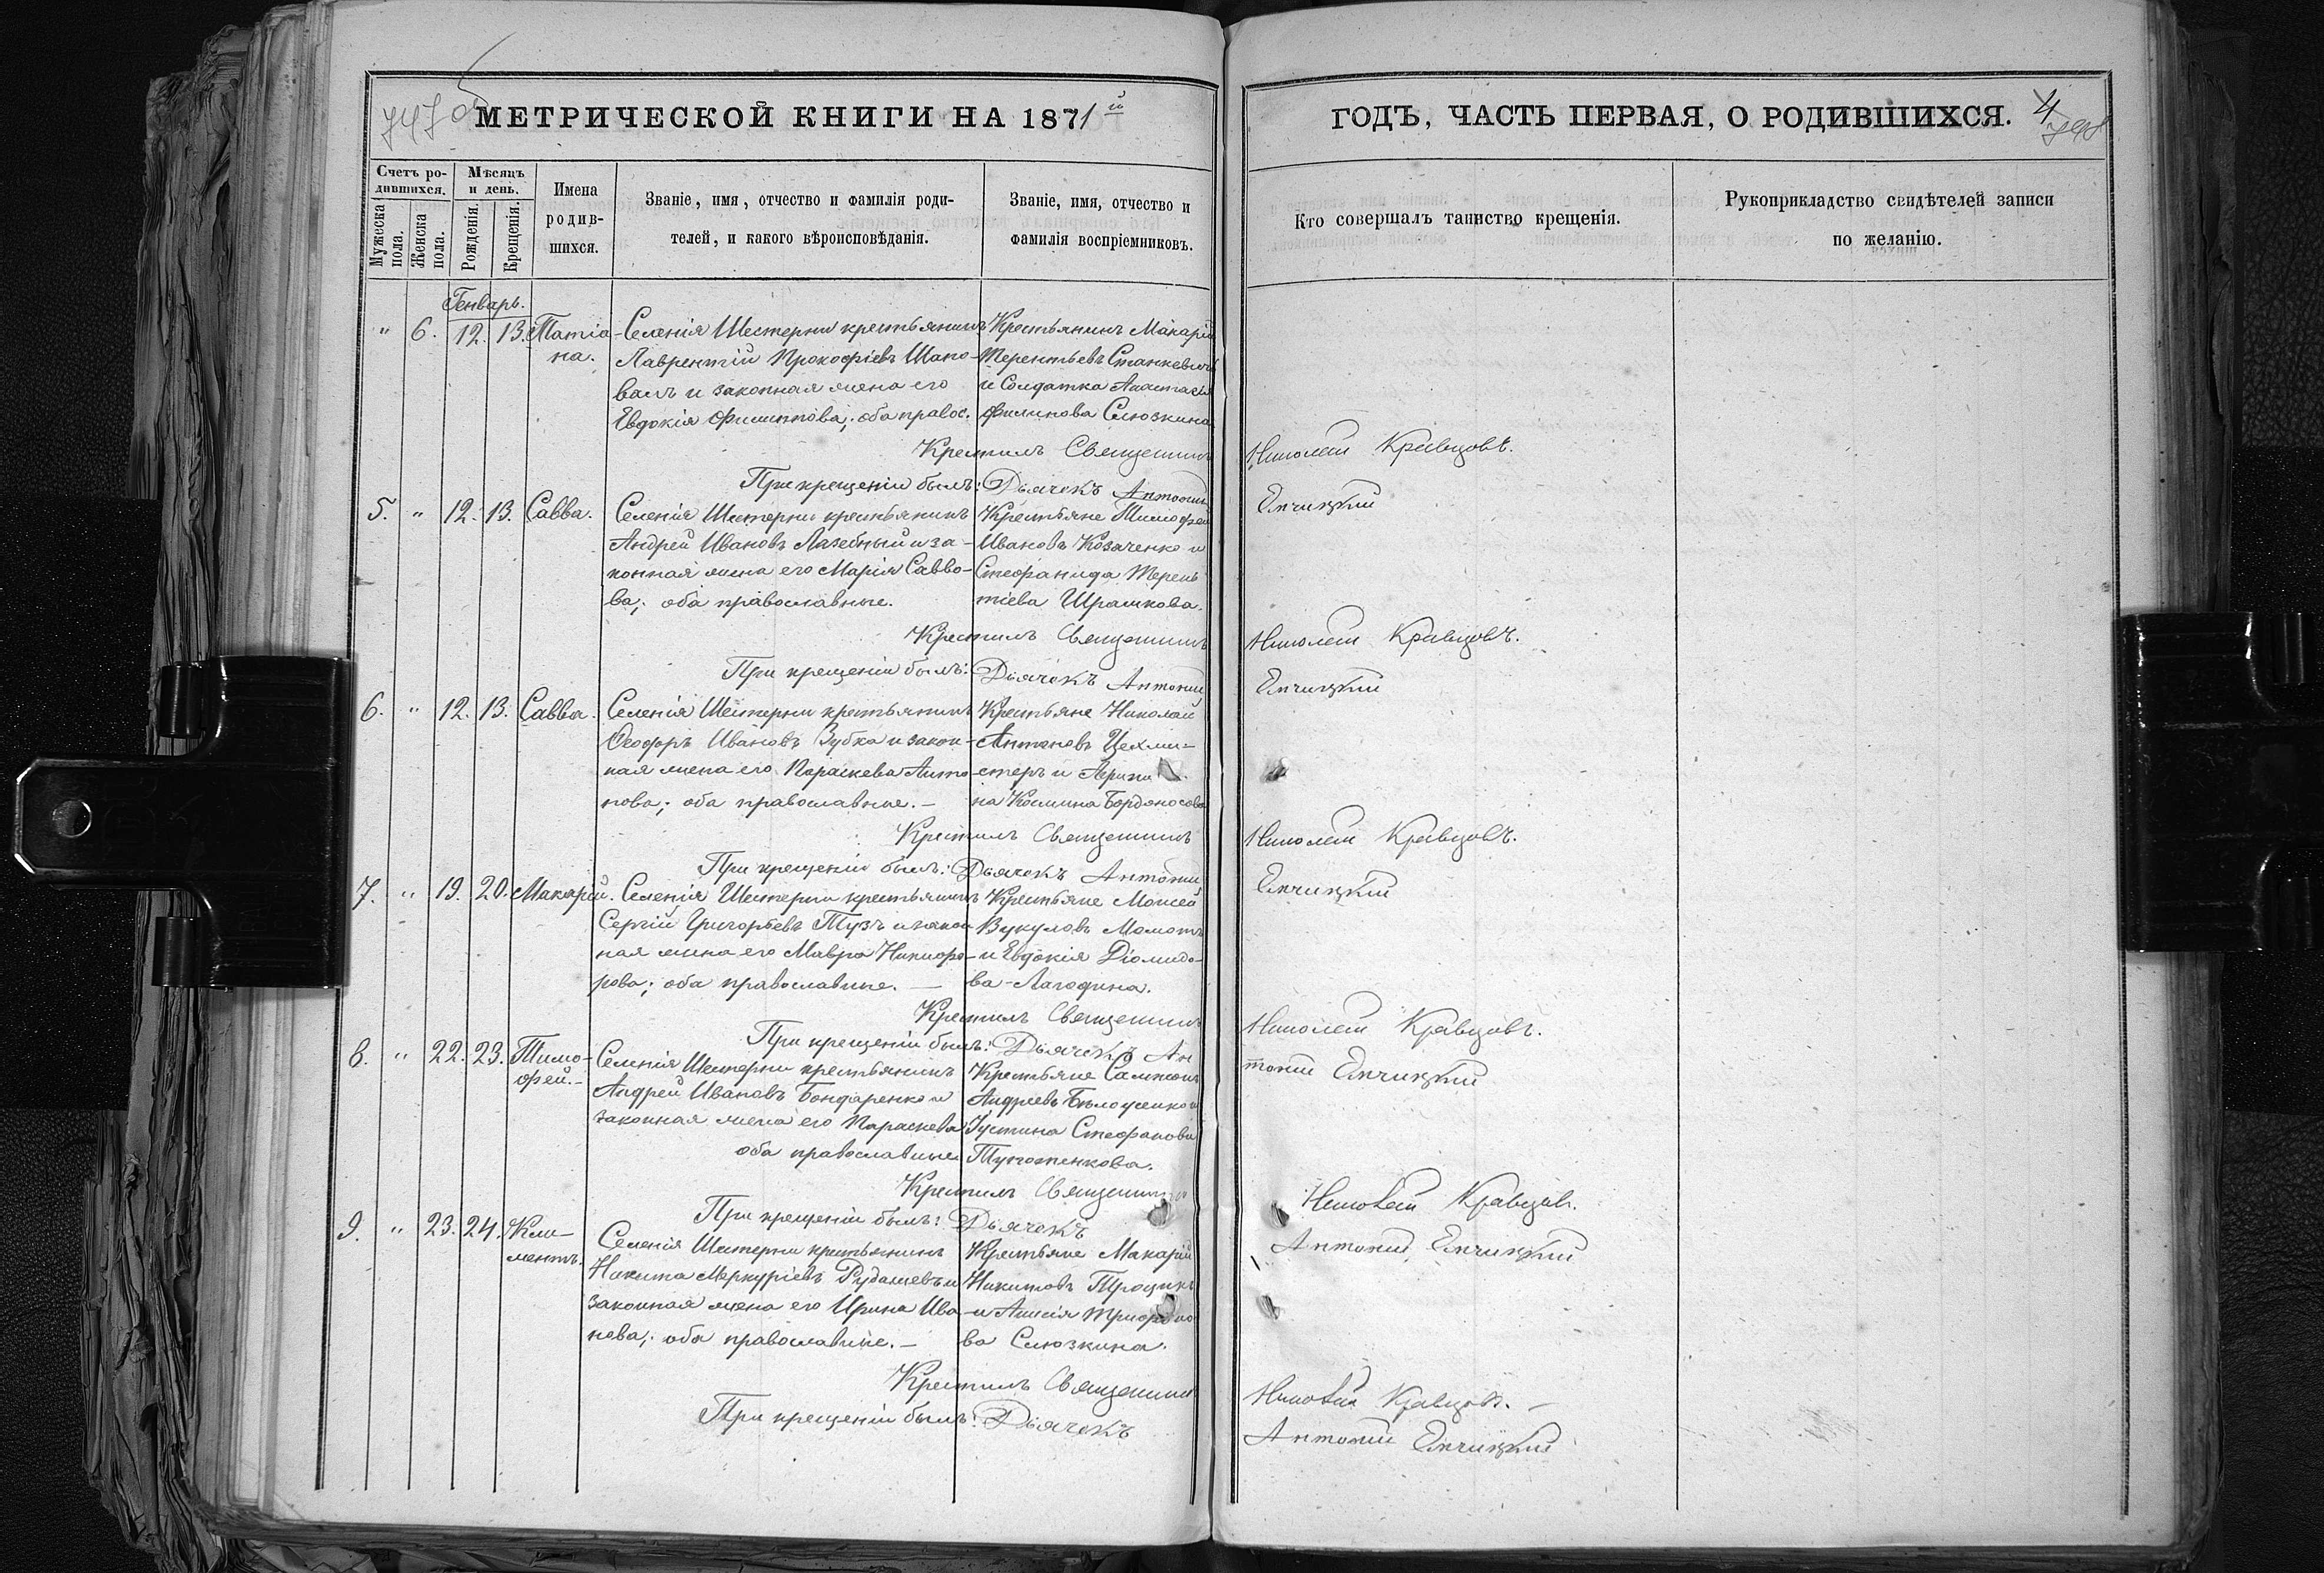 МЕТРИЧЕСКОЙ КНИГИ НА 1871й
ГОДЪ, ЧАСТЬ ПЕРВАЯ, О РОДИВШИХСЯ.
Счетъ ро-
дившихся.
Мужеска пола.
Женска пола.
Мѣсяцъ и день.
Рожденія.
Крещенія.
Имена
родив-
шихся.
Званіе, имя, отчество и фамилія роди-
телей, и какого вѣроисповѣданія.
Званіе, имя, отчество и
фамилія воспріемниковъ.
Кто совершалъ таинство крещенія.
Рукоприкладство свидѣтелей записи
по желанію.
Генварь.
" 6. 12. 13. Татіа- Селенія Шестерни крестьянинъ Крестьянинъ Макарій
на. Лаврентій Прокофіевъ Шапо- Терентьевъ Станкевичъ
валъ и законная жена его и Солдатка Анастасія
Евдокія Филиппова; оба правос. Филипова Слюзкина
Крестилъ Священникъ Николай Кравцовъ.
При крещеніи былъ: Дьячекъ Антоній
5. " 12. 13. Савва. Селенія Шестерни крестьянинъ Крестьяне Тимофей
Андрей Ивановъ Лазебный и за- Ивановъ Козаченко и
конная жена его Марія Савво- Стефанида Терень
ва; оба православные. тіева Шрамкова.
Крестилъ Священникъ Николай Кравцовъ.
При крещеніи былъ: Дьячекъ Антоній
6. " 12. 13. Савва. Селенія Шестерни крестьянинъ Крестьяне Николай
Ѳеодоръ Ивановъ Зубка и закон- Антоновъ Цехми-
ная жена его Параскева Анто- стеръ и Агрипи
нова; оба православные. — на Космина
Крестилъ Священникъ Николай Кравцовъ.
При крещеніи былъ: Дьячекъ Антоній
7. " 19. 20. Макарій. Селенія Шестерни крестьянинъ Крестьяне Моисей
Сергій Григорьевъ Тузъ и закон Вукуловъ Мамотъ
ная жена его Мавра Никифо- и Евдокія Діомидо-
рова; оба православные. — ва Лагодина.
Крестилъ Священникъ Николай Кравцовъ.
При крещеніи былъ: Дьячекъ Ан
тоній
8. " 22. 23. Тимо- Селенія Шестерни крестьянинъ Крестьяне Сампсонъ
фей.- Андрей Ивановъ Бондаренко и Андреевъ
законная жена его Параскева Іустина Стефанова
оба православные
Крестилъ Священникъ Николай Кравцовъ.
При крещеніи былъ: Дьячекъ Антоній
9. " 23. 24. Кли- Селенія Шестерни крестьянинъ Крестьяне Макарій
ментъ. Никита Меркуріевъ Рудашевъ и Никитовъ
законная жена его Ирина Ива- и Анисія Трифоно
нова; оба православные. — ва Слюзкина.
Крестилъ Священникъ Николай Кравцовъ. —
При крещеніи былъ: Дьячекъ Антоній